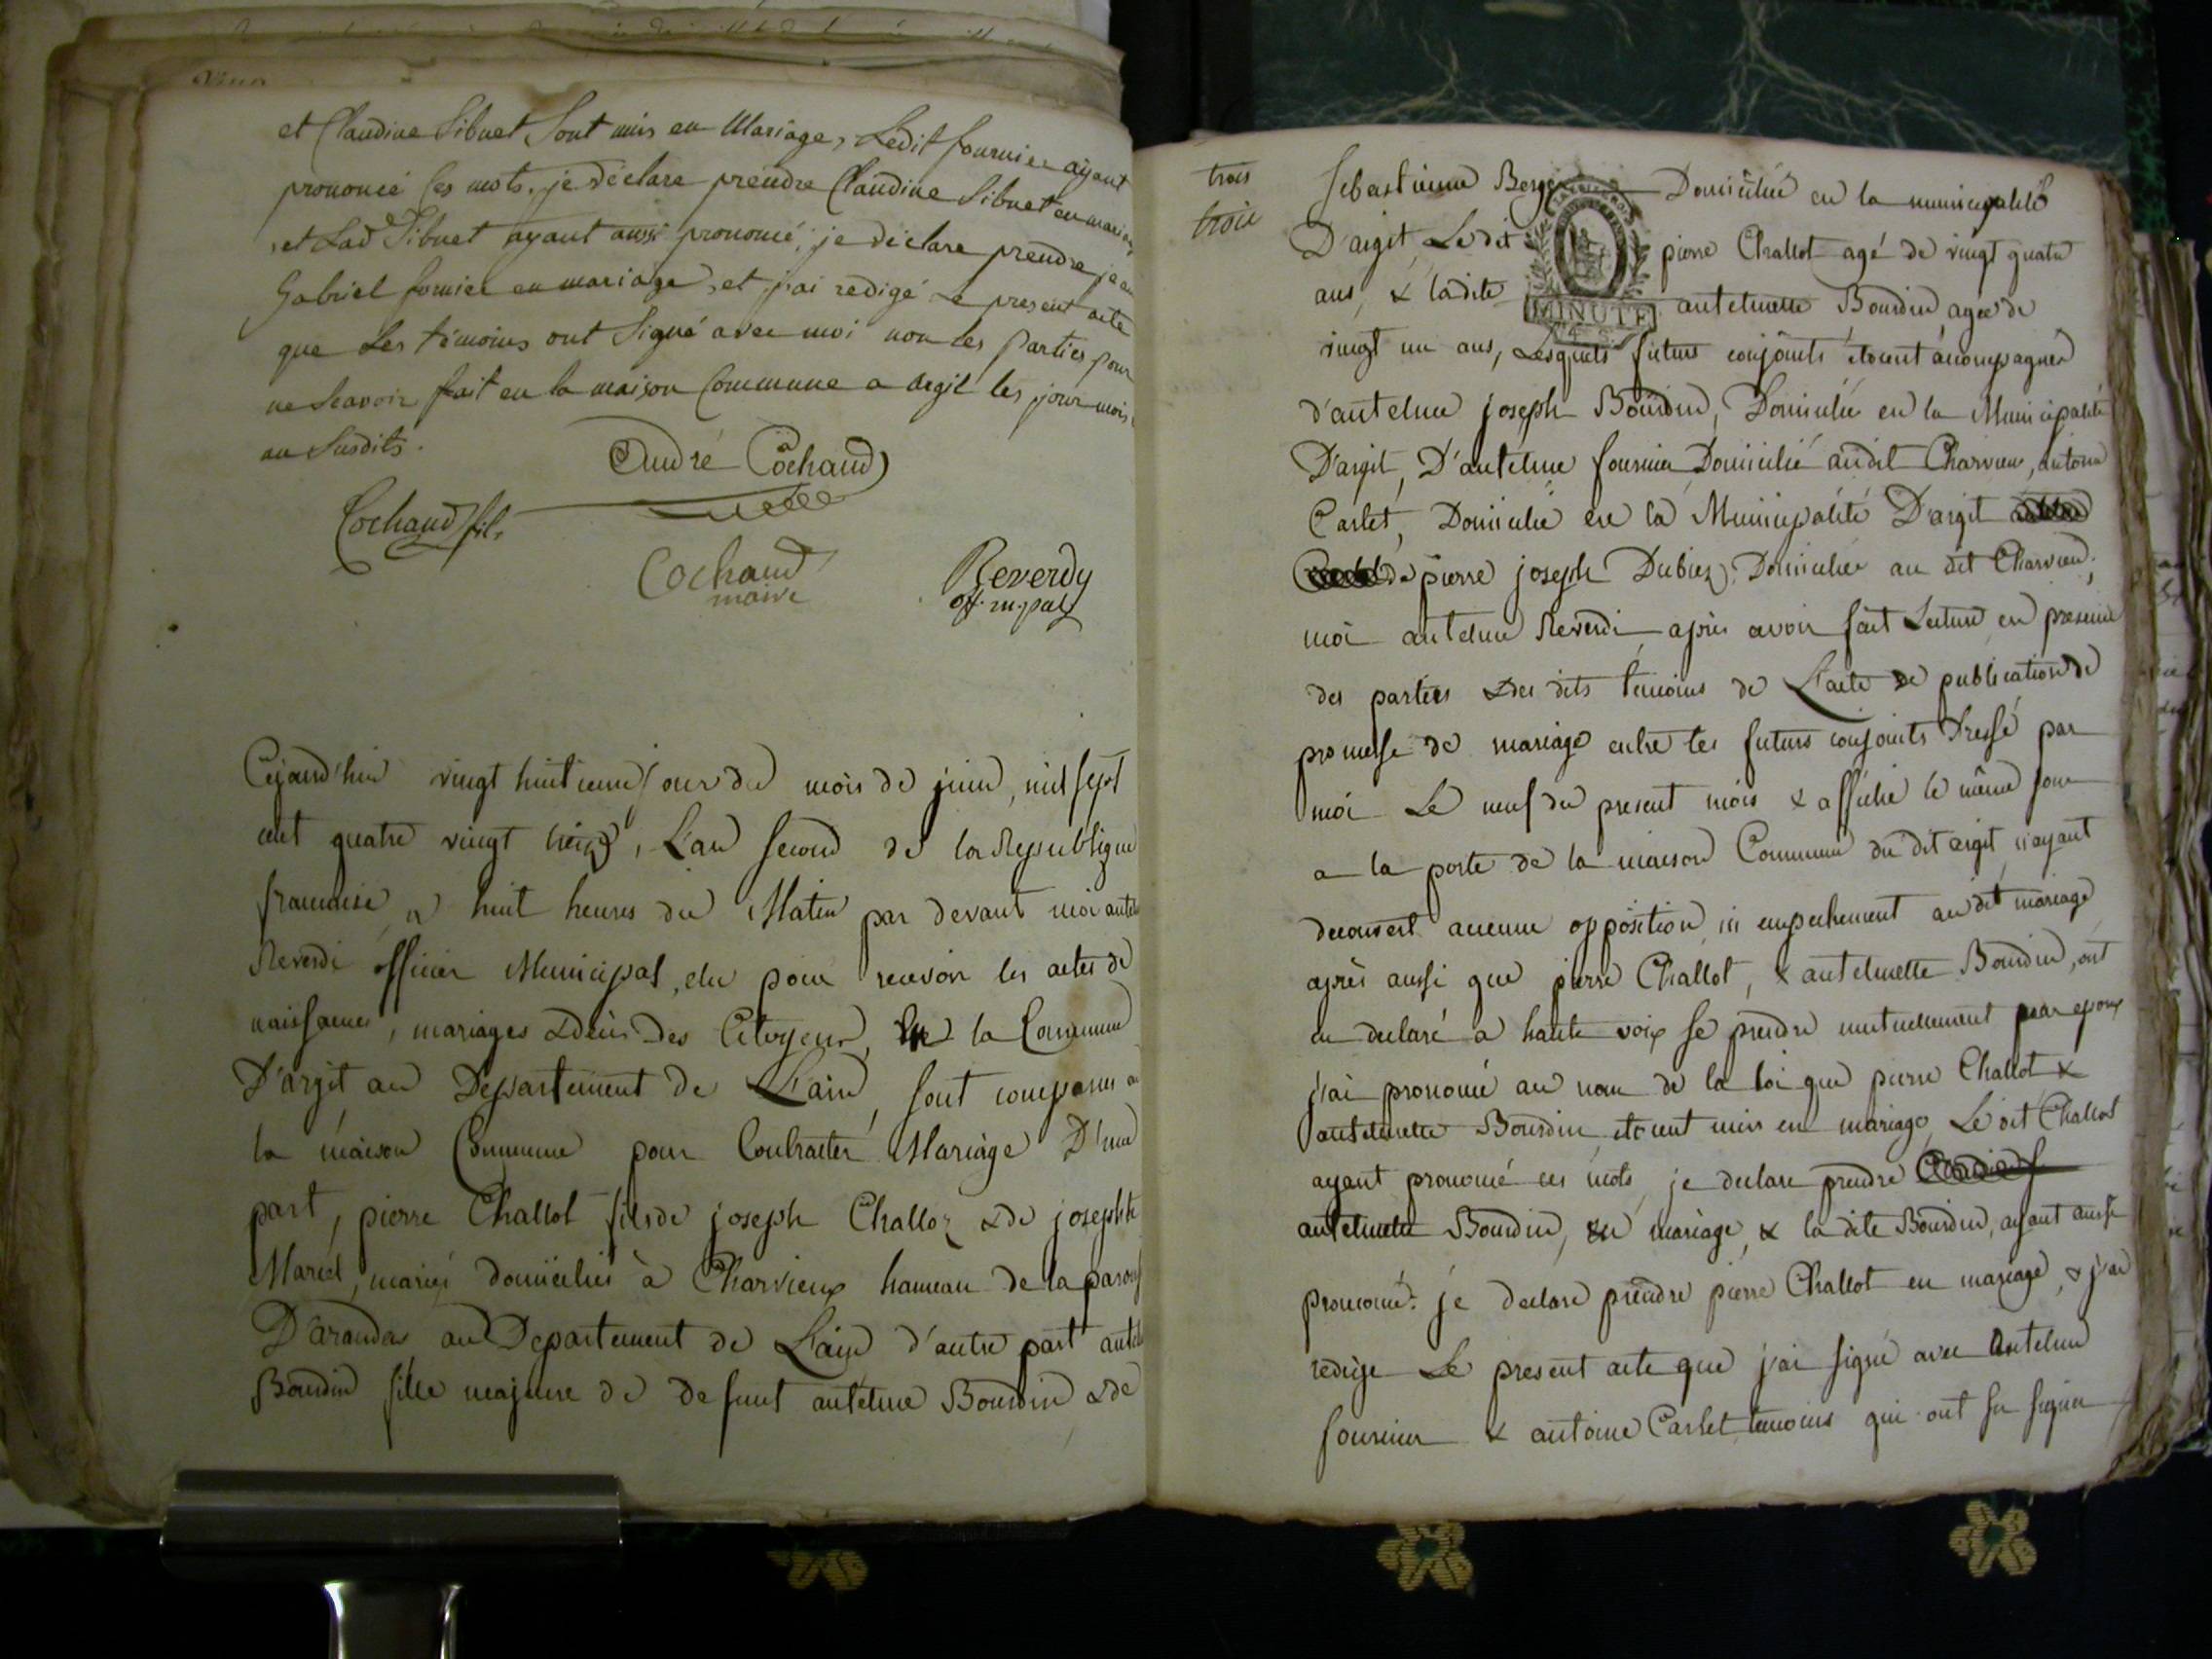 et Claudine Sibuet Sont unis en Mariage, Ledit fournier ayant
prononcé Ces mots, je déclare prendre Claudine Sibuet en mariage
et Lad Sibuet ayant aussi prononcé; je déclare prendre jean
Gabriel fornier en mariage, et j'ai redigé Le present acte
que Les témoins ont Signé avec moi non les Parties pour
ne Scavoir fait en la maison Commune a Argit les jour mois
an Susdits.
André Cochaud
Cochaud fils
Cochaud
maire
Reverdy
off. m.pal
Cejourd'hui vingt huitieme jour du mois de juin, mil sept
cent quatre vingt treize, L'an second de la Republique
francaise, a huit heures du Matin par devant moi antel
Reverdi officier Municipal, elu pour recevoir les actes de
naissances, mariages & décès des Citoyens, la Commune
D'argit au Departement de L'ain, sont comparus a
la maison Commune pour Contracter Mariage D'une
part, pierre Challot fils de joseph Challot & de josephte
Marcel, mariés domiciliés à Charvieux hameau de la paroiss
D'arandas au Departement de L'ain d'autre part antel
Bourdin fille majeure de defunt antelme Bourdin & de
trois
trois
Sebastienne Berger Domiciliée en la municipalité
D'argit, Le dit pierre Challot agé de vingt quatre
ans, & ladite antelmette Bourdin, agée de
vingt un ans, Lesquels futurs conjoints étoient acompagnés
d'antelme joseph Bourdin, Domicilié en la Municipalité
D'argit, D'antelme fournier Domicilié audit Charvieux, antoine
Carlet, Domicilié en la Municipalité D'argit
de pierre joseph Dubiez, Domicilié au dit Charvieu,
moi antelme Reverdi après avoir fait Lecture en presence
des parties & des dits témoins de L'acte de publication de
promesse de mariage entre les futurs conjoints dressé par
moi Le neuf du present mois & affiché le même jour
a la porte de la maison Commune du dit argit, n'ayant
decouvert aucune opposition ni empechement au dit mariage
après aussi que pierre Challot, & antelmette Bourdin, ont
eu declaré a haute voix se prendre mutuellement pour epoux
j'ai prononcé au nom de la loi que pierre Challot &
antelmette Bourdin étoient unis en mariage, Le dit Challot
ayant prononcé ces mots, je declare prendre
antelmette Bourdin, en mariage, & la dite Bourdin, ayant aussi
prononcé: je declare prendre pierre Challot en mariage, & j'ai
redigé Le present acte que j'ai signé avec Antelme
fournier & antoine Carlet temoins qui ont su signer
MINUTE